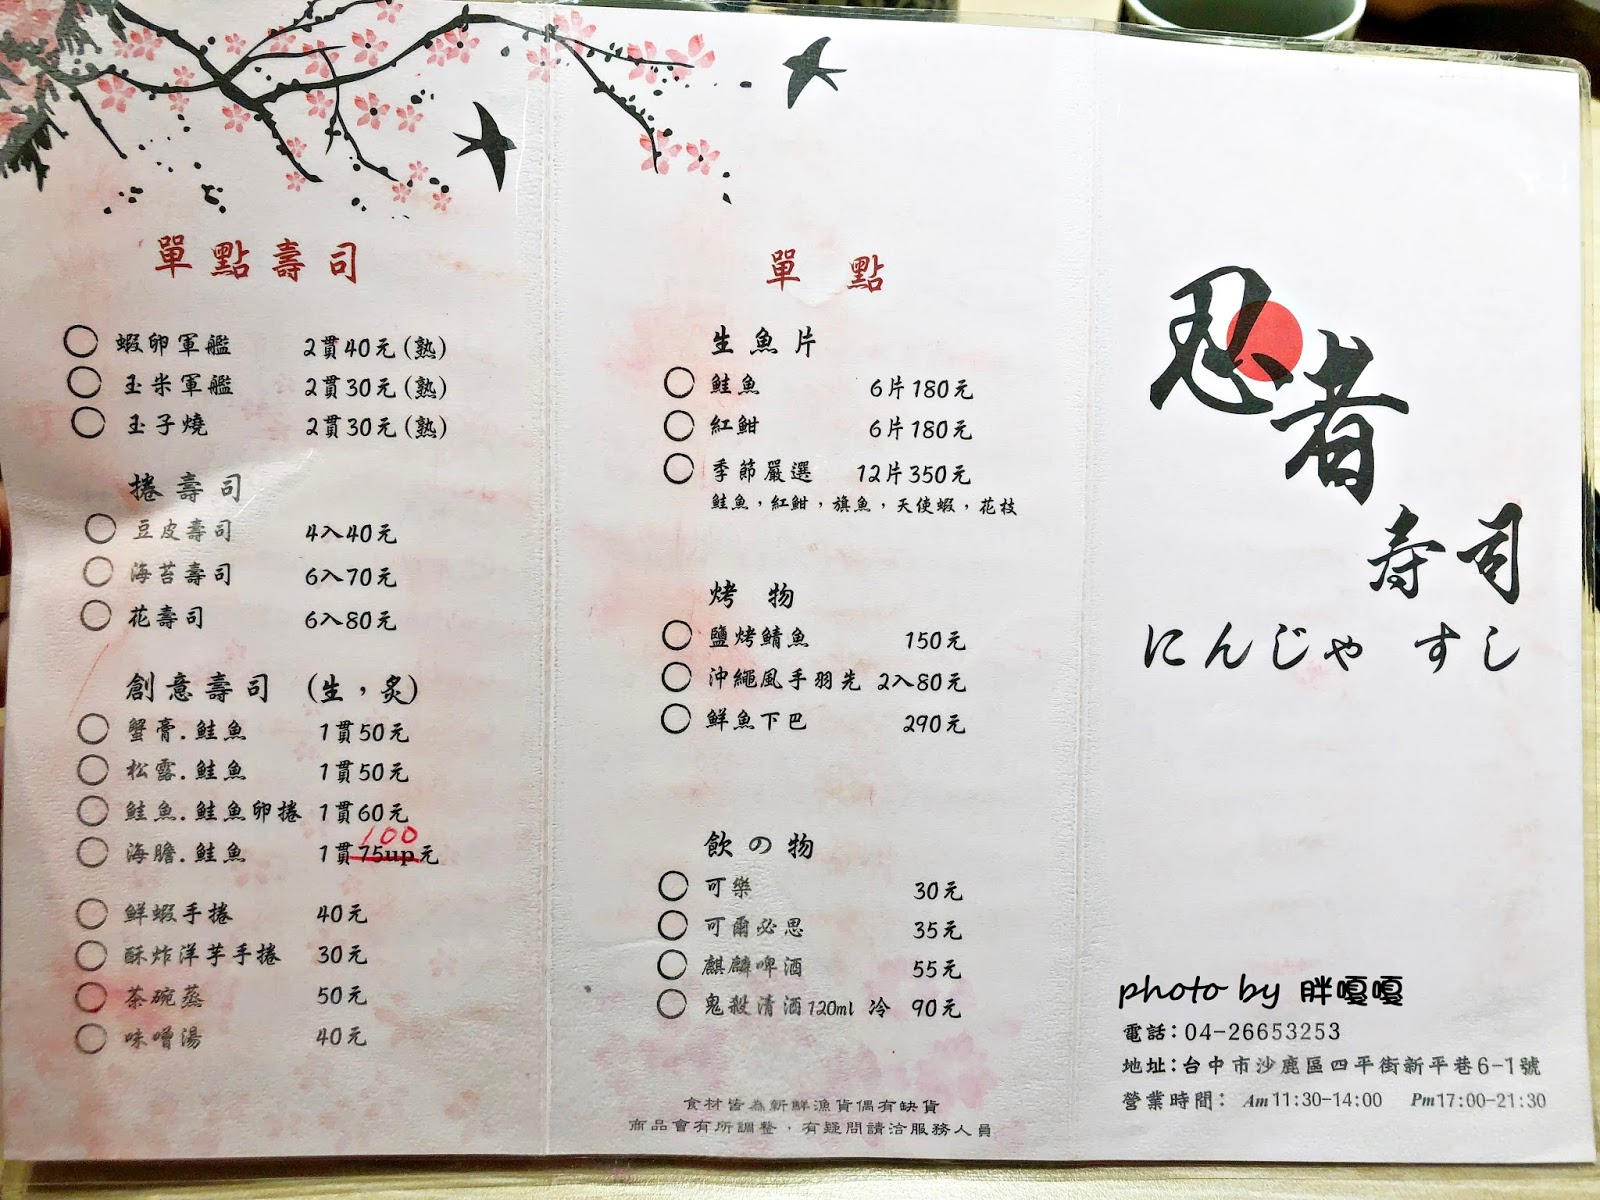 單點壽司
蝦卵軍艦 2貫40元(熟)
玉米軍艦 2貫30元(熟)
玉子燒 2貫30元(熟)
捲壽司
豆皮壽司 4入40元
海苔壽司 6入70元
花壽司 6入80元
創意壽司 (生,炙)
蟹膏.鮭魚 1貫50元
松露.鮭魚 1貫50元
鮭魚.鮭魚卵捲 1貫60元
100
海膽.鮭魚 1貫75up元
鮮蝦手捲 40元
酥炸洋芋手捲 30元
茶碗蒸 50元
味噌湯 40元
單點
生魚片
鮭魚 6片180元
紅魽 6片180元
季節嚴選 12片350元
鮭魚,紅魽,旗魚,天使蝦,花枝
烤物
鹽烤鯖魚 150元
沖繩風手羽先 2入80元
鮮魚下巴 290元
飲の物
可樂 30元
可爾必思 35元
麒麟啤酒 55元
鬼殺清酒120ml 冷 90元
食材皆為新鮮漁貨偶有缺貨
商品會有所調整,有疑問請洽服務人員
忍者
寿司
にんじゃ すし
photo by 胖嘎嘎
電話:04-26653253
地址:台中市沙鹿區四平街新平巷6-1號
營業時間: Am11:30-14:00 Pm17:00-21:30